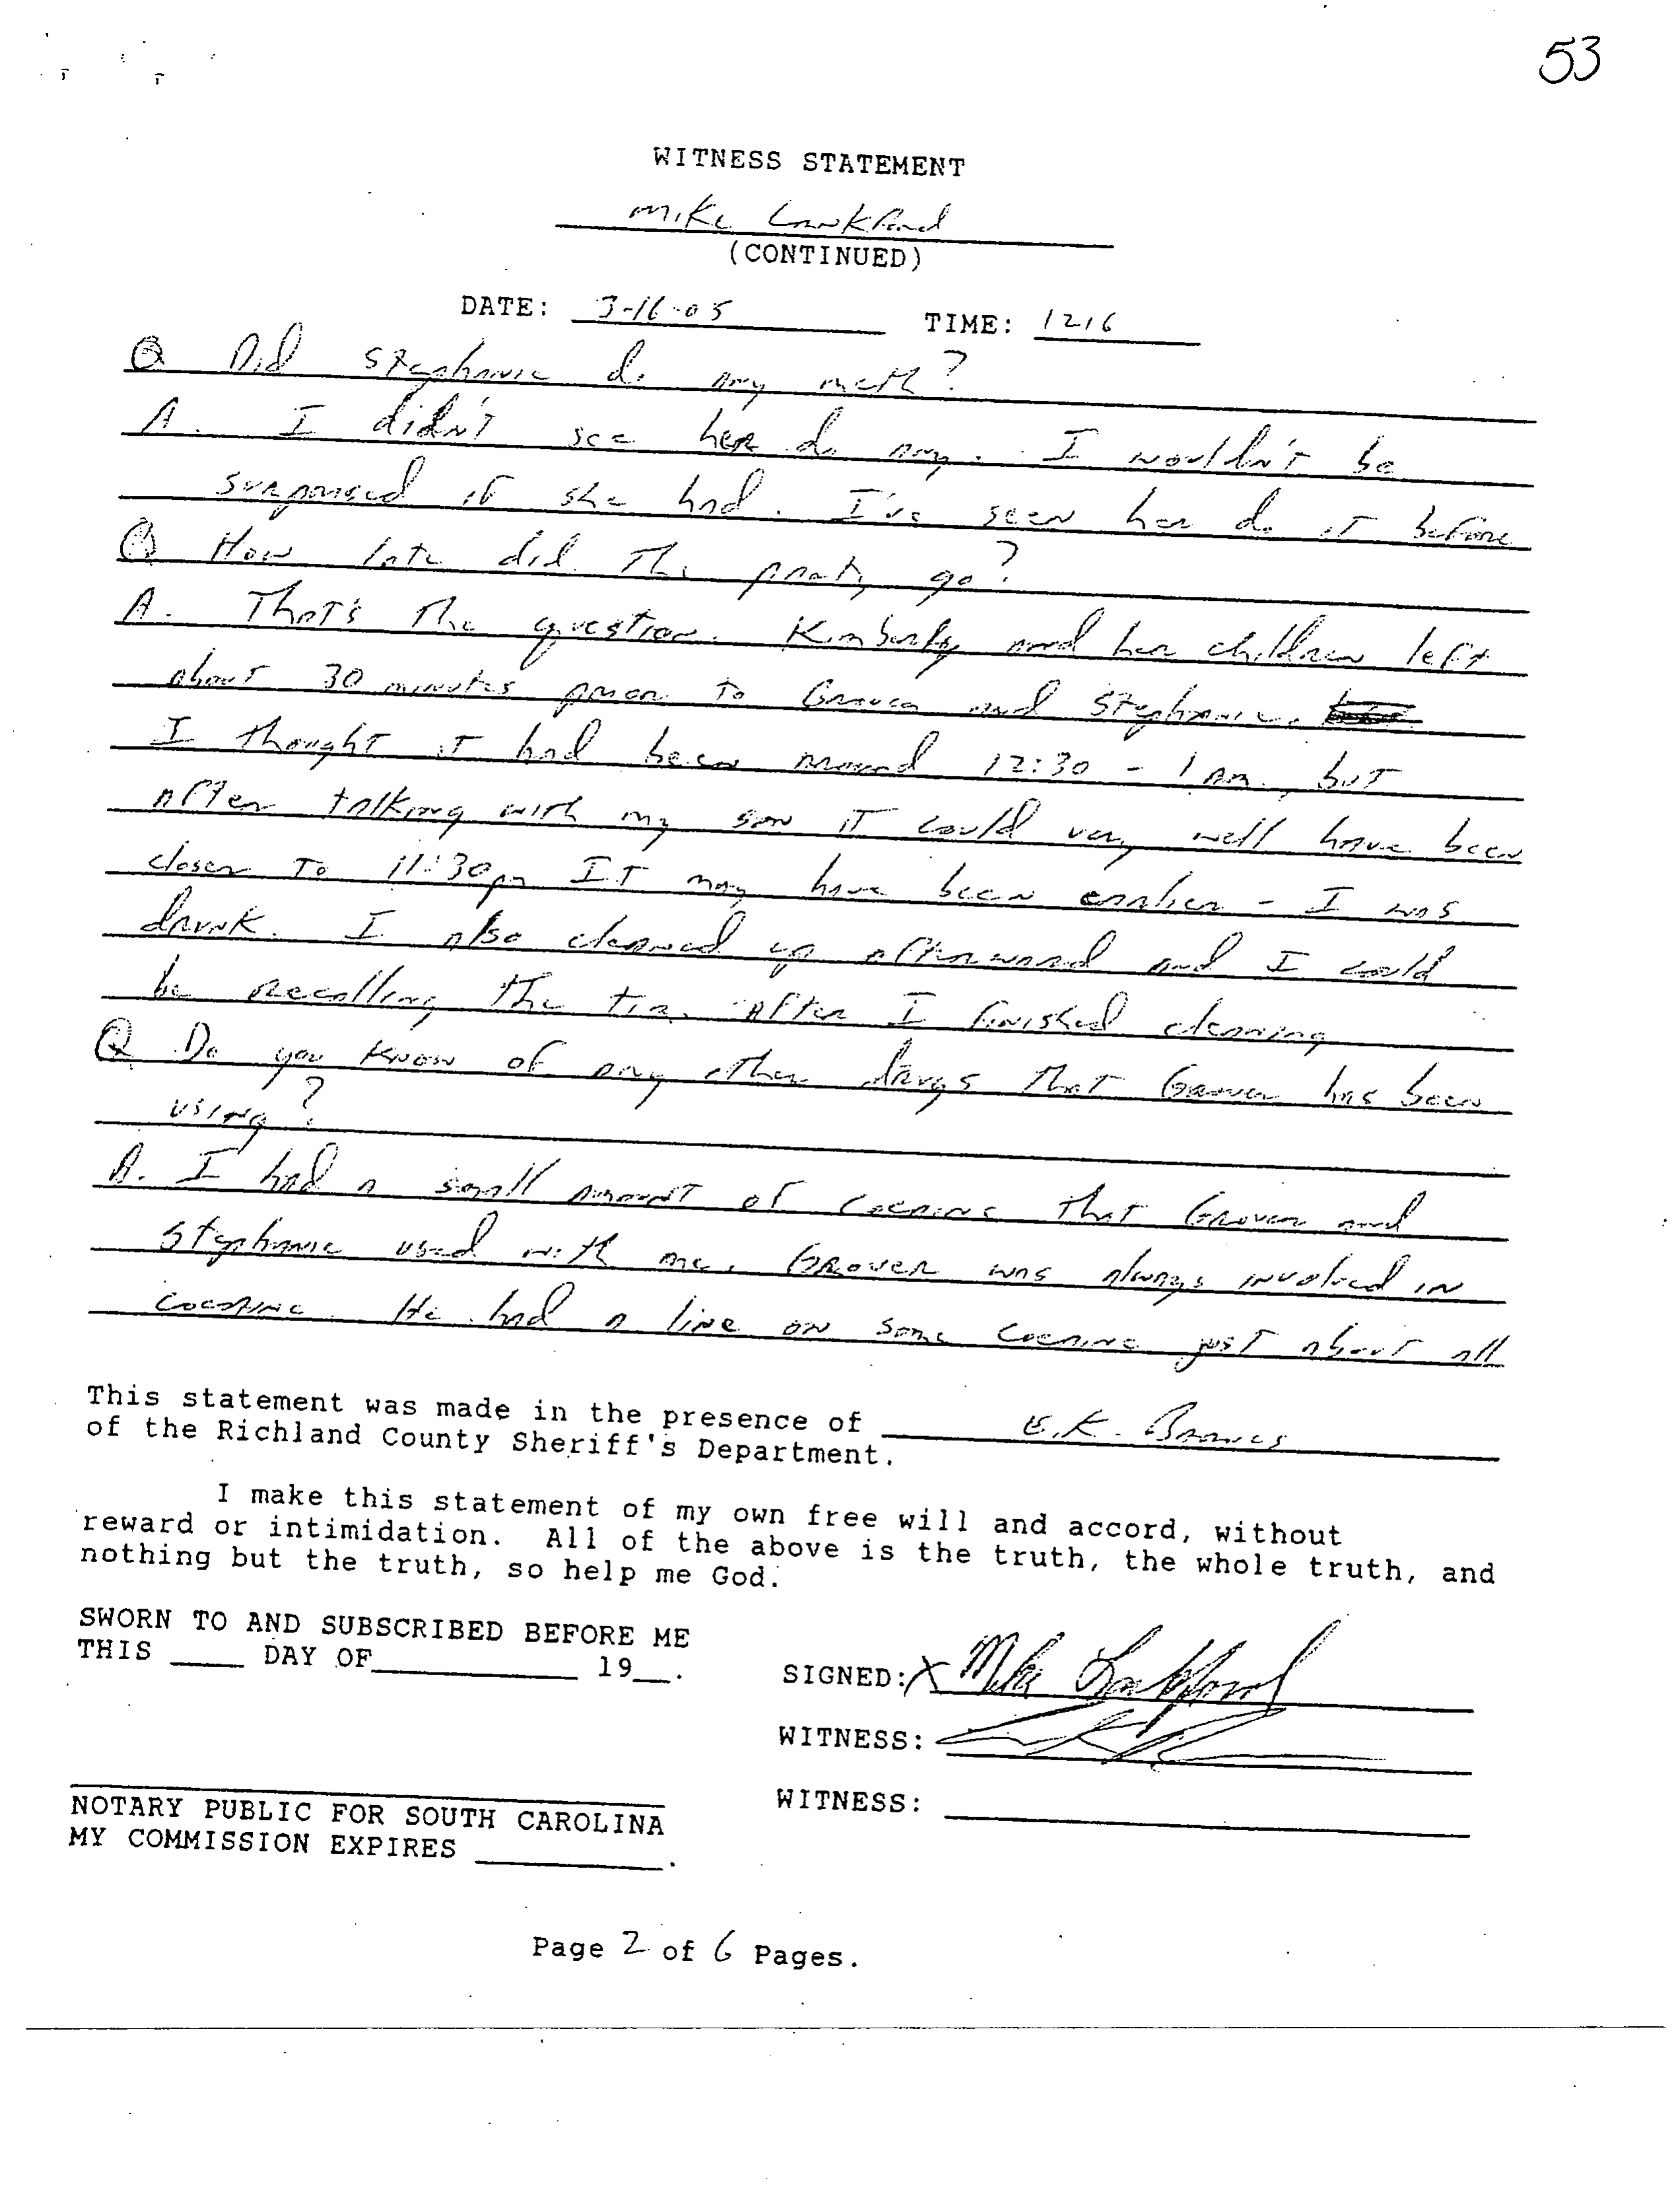 53
WITNESS STATEMENT
Mike Lankford
(CONTINUED)
DATE: 3-16-05 TIME: 1216
Q Did Stephanie do any meth?
A. I didn't see her do any. I wouldn't be
surprised if she had. I've seen her do it before
Q How late did the party go?
A. That's the question. Kimberly and her children left
about 30 minutes prior to Grover and Stephanie.
I thought it had been around 12:30 - 1 am, but
after talking with my son it could very well have been
closer to 11:30pm It may have been earlier - I was
drunk. I also cleaned up afterward and I could
be recalling the time after I finished cleaning
Q Do you know of any other drugs that Grover has been
using?
A. I had a small amount of cocaine that Grover and
Stephanie used with me. Grover was always involved in
cocaine. He had a line on some cocaine just about all
This statement was made in the presence of K. Barnes
of the Richland County Sheriff's Department.
I make this statement of my own free will and accord, without
reward or intimidation. All of the above is the truth, the whole truth, and
nothing but the truth, so help me God.
SWORN TO AND SUBSCRIBED BEFORE ME
THIS ____ DAY OF___________ 19__.
SIGNED: X Mike Lankford
WITNESS:
WITNESS:
NOTARY PUBLIC FOR SOUTH CAROLINA
MY COMMISSION EXPIRES __________.
Page 2 of 6 Pages.